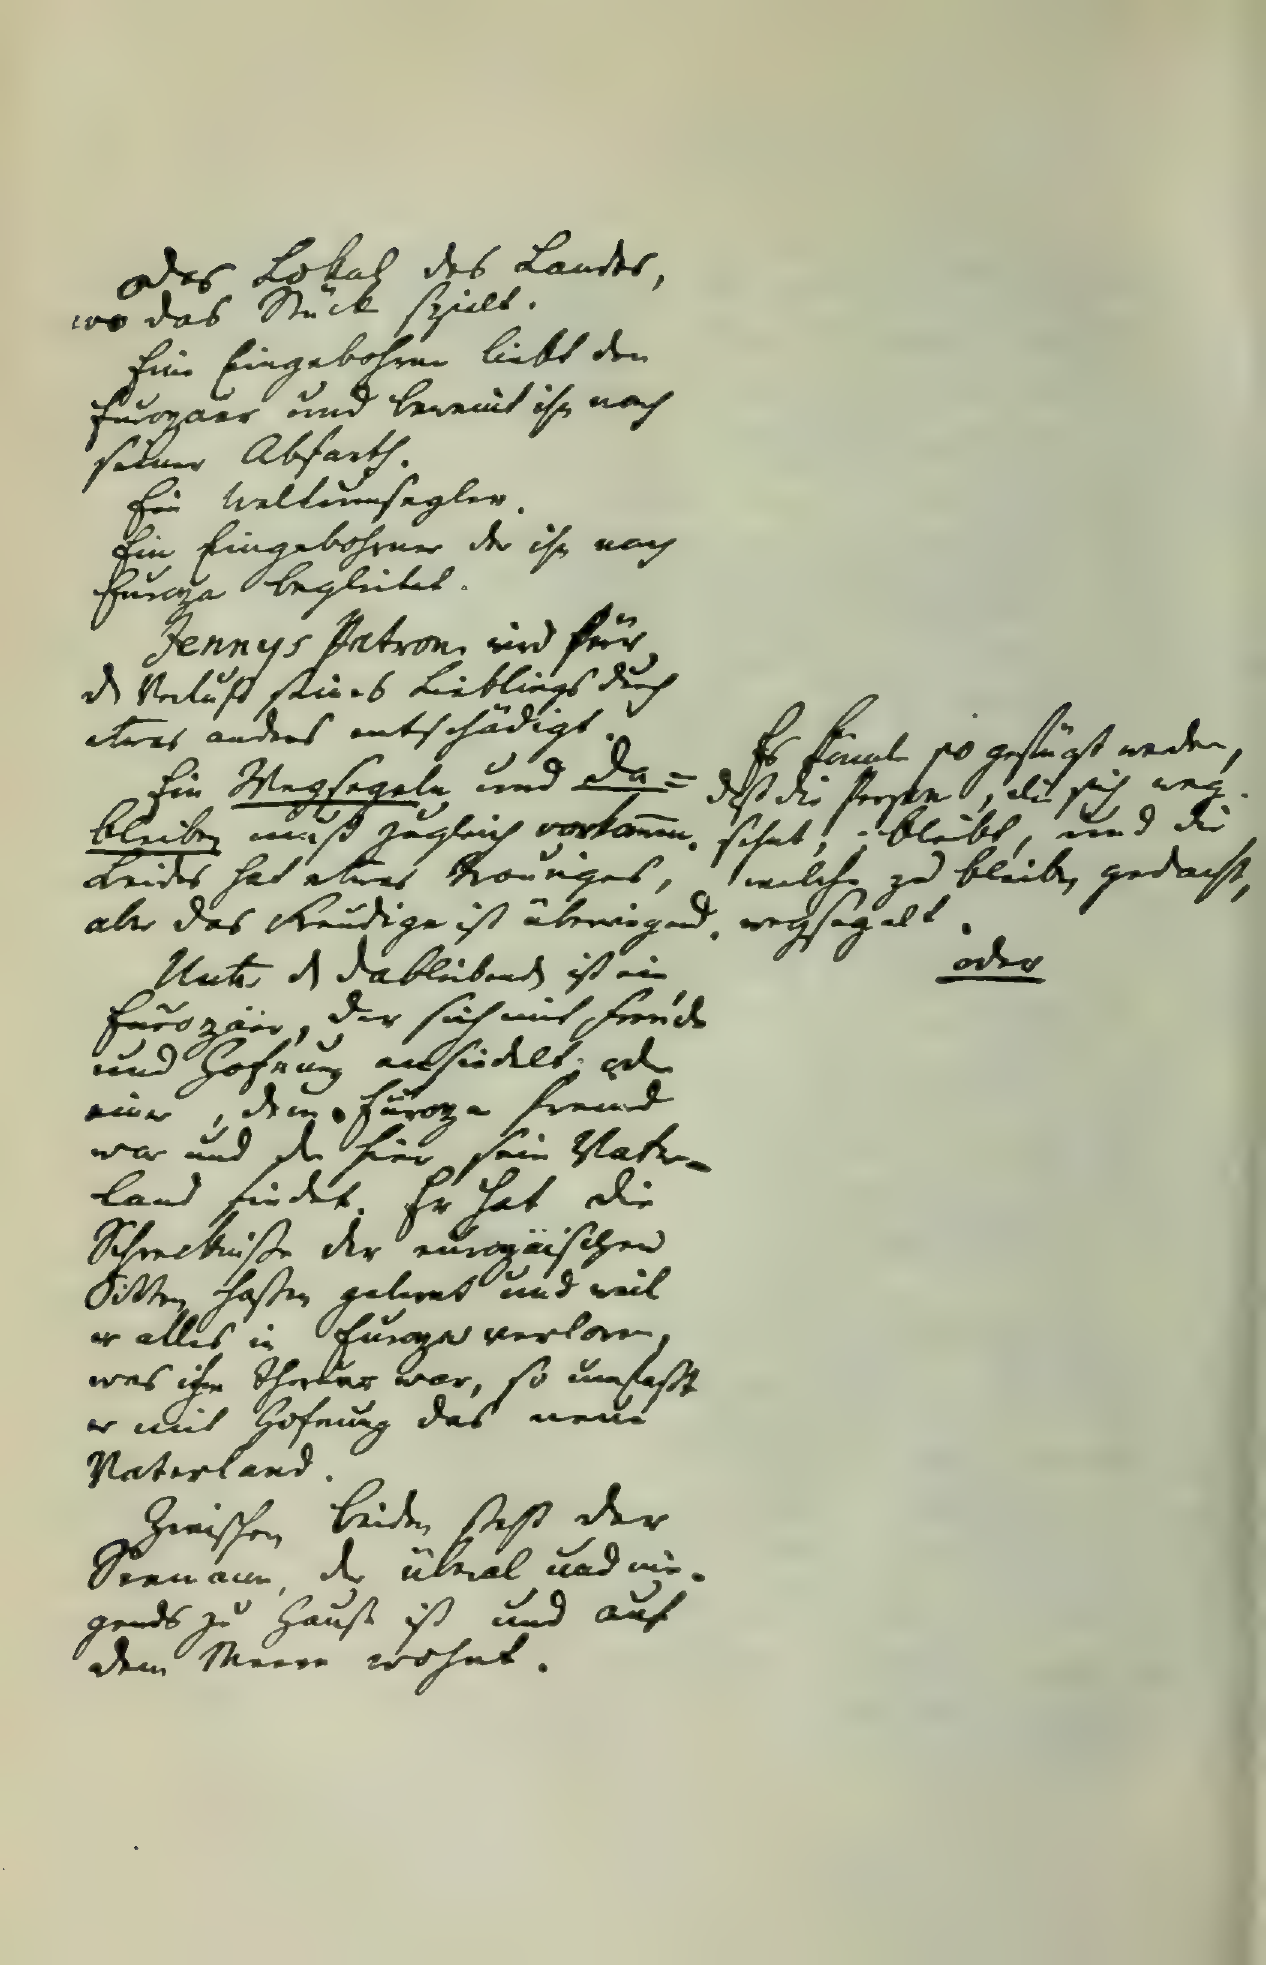 Das Lokal des Landes,
wo das Stück spielt.
Eine Eingebohrne liebt den
Europäer und beweint ihn nach
seiner Abfarth.
Ein Weltumsegler.
Ein Eingebohrner der ihn nach
Europa begleitet.
Jennys Patron wird für
den Verlust seines Lieblings durch
etwas anders entschädigt.
Ein Wegsegeln und Da=
bleiben muß zugleich vorkommen.
Beides hat etwas trauriges,
aber das Freudige ist überwiegend.
Es könnte so gefügt werden,
daß die Person, die sich weg
sehnt, bleibt, und die
welche zu bleiben gedacht,
wegsegelt.
oder
Unter den dableibenden ist ein
Europäer, der sich mit Freude
und Hofnung ansiedelt oder
einer, dem Europa fremd
war und der hier sein Vater-
land findet. Er hat die
Schrecknisse der europäischen
Sitten hassen gelernt und weil
er alles in Europa verloren,
was ihm theuer war, so umfaßt
er mit Hofnung das neue
Vaterland.
Zwischen beiden steht der
Seemann, der überal und nir-
gends zu Hause ist und auf
dem Meere wohnt.